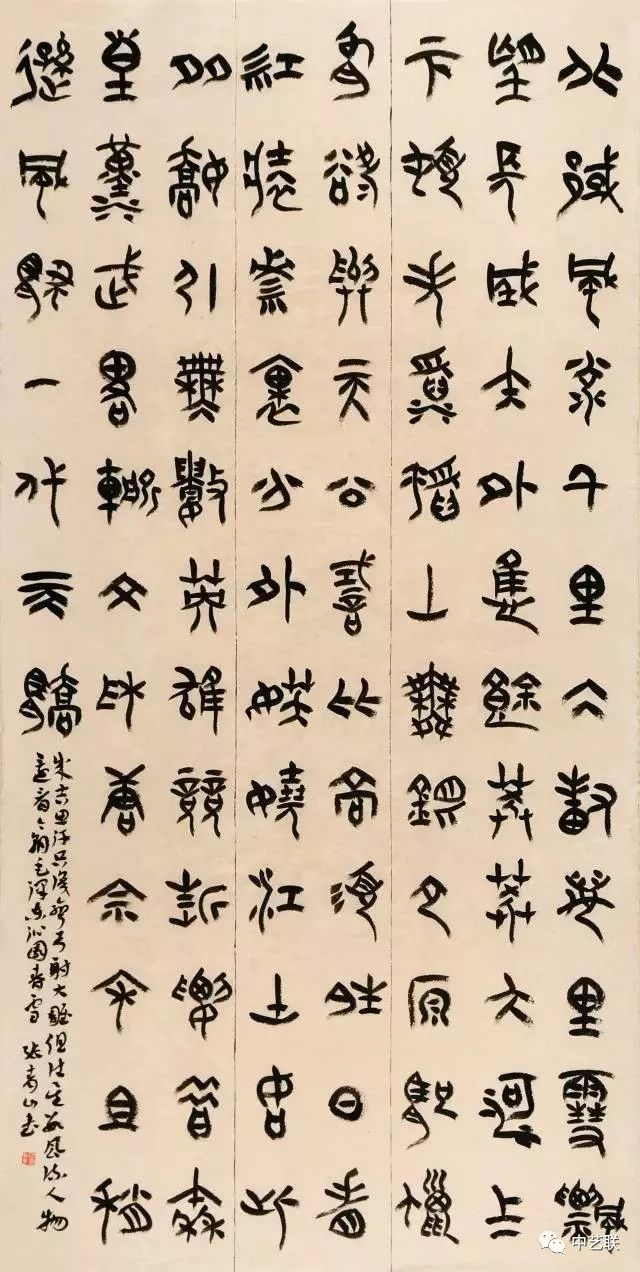 北國風光千里冰封萬里雪飄
望長城內外惟餘莽莽大河上
下頓失滔滔山舞銀蛇原馳蠟
象欲與天公試比高須晴日看
紅裝素裹分外妖嬈江山如此
多嬌引無數英雄競折腰惜秦
皇漢武略輸文采唐宗宋祖稍
遜風騷一代天驕
成吉思汗只識彎弓射大雕俱往矣數風流人物
還看今朝毛澤東沁園春雪 張青山書
中艺联